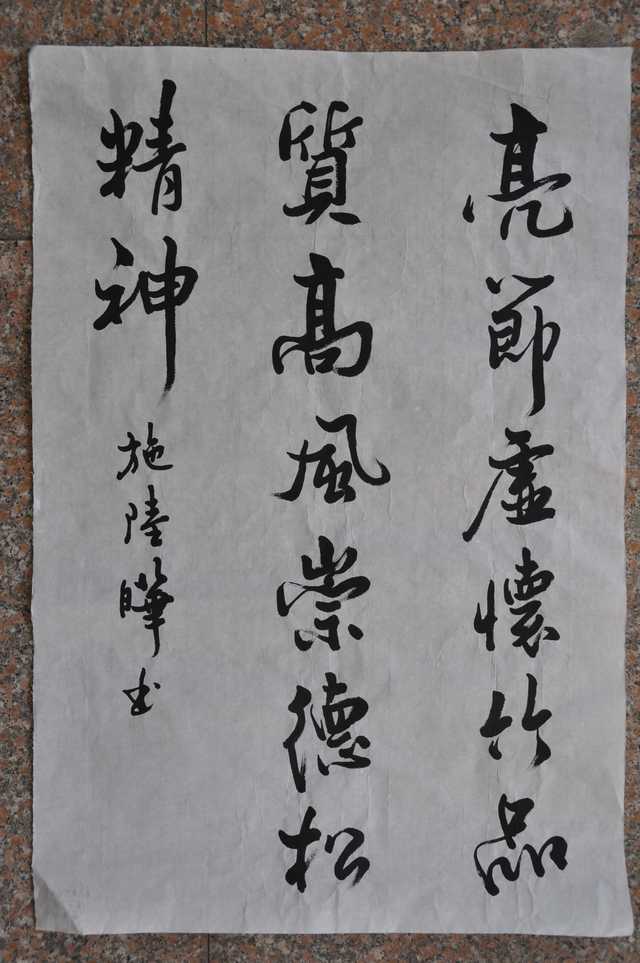 亮節虛懷竹品
質髙風崇德松
精神
施陸曄书